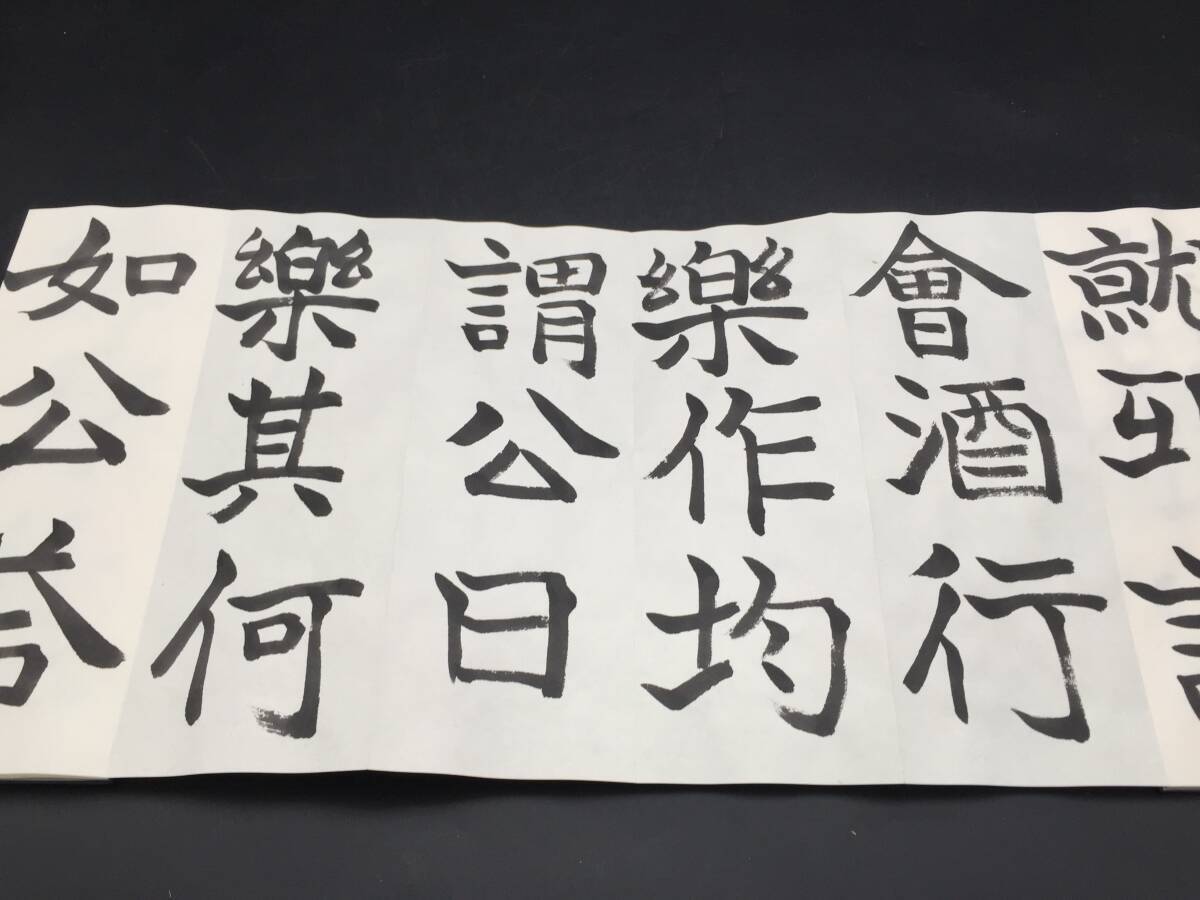 就
會酒行
樂作均
謂公曰
樂其何
如公